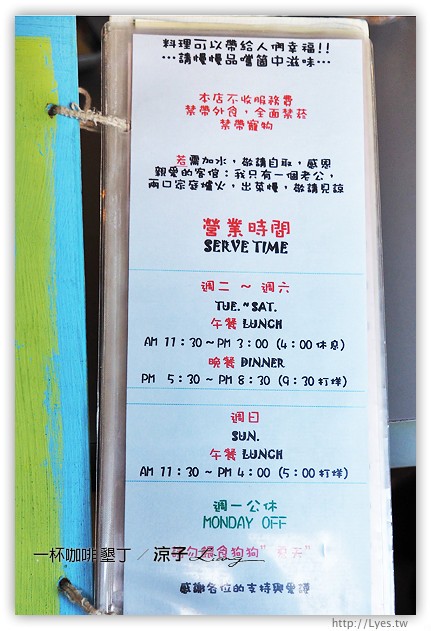 料理可以帶給人們幸福!!
…請慢慢品嚐箇中滋味…
本店不收服務費
禁帶外食，全面禁菸
禁帶寵物
若需加水，敬請自取，感恩
親愛的客倌：我只有一個老公，
兩口家庭爐火，出菜慢，敬請見諒
營業時間
SERVE TIME
週二 ～ 週六
TUE.~SAT.
午餐 LUNCH
AM 11：30～PM 3：00 (4：00休息)
晚餐 DINNER
PM 5：30～PM 8：30 (9：30打烊)
週日
SUN.
午餐 LUNCH
AM 11：30～PM 4：00 (5：00打烊)
週一公休
MONDAY OFF
勿餵食狗狗"
一杯咖啡墾丁 ／ 涼子
感謝各位的支持與愛護
http://Lyes.tw